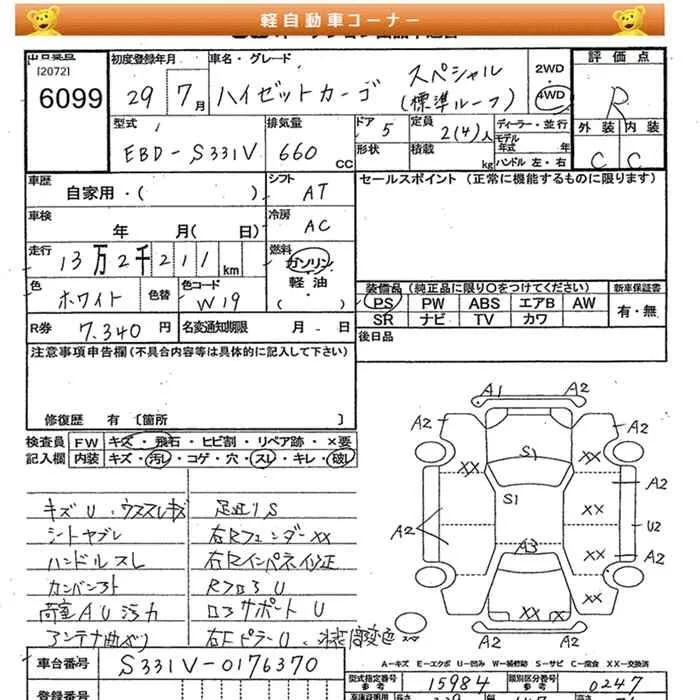 軽自動車コーナー
[2072]
6099
初度登録年月
29 7月
車名・グレード
ハイゼットカーゴ
スペシャル
(標準ルーフ)
2WD
4WD
評価点
R
外装 内装
C C
型式
EBD-S331V
排気量
660 CC
ドア
5
形状
定員
2(4)人
積載
kg
ディーラー・並行
モデル年式 年
ハンドル 左・右
車歴
自家用・( )
シフト
AT
セールスポイント (正常に機能するものに限ります)
車検
年 月( 日)
冷房
AC
走行
13万2千211km
燃料
ガソリン
軽油
( )
色
ホワイト
色替
色コード
W19
装備品 (純正品に限り○をつけてください)
新車保証書
PS PW ABS エアB AW
有・無
SR ナビ TV カワ
R券
7,340円
名変通知期限 月 - 日
後日品
注意事項申告欄(不具合内容等は具体的に記入して下さい)
修復歴 有 〔箇所 〕
検査員
記入欄
FW キズ・飛石・ヒビ割・リペア跡・×要
内装 キズ・汚レ・コゲ・穴・スレ・キレ・破レ
キズU・ウススレキズ
シートヤブレ
ハンドルスレ
カンバン跡
荷室AU汚れ
アンテナ曲がり
足廻りS
右Rフェンダーxx
右Rインパネ修正
RフロアU
ロアサポートU
右FピラーU・
A1 A2
A2 A2
xx S1
S1 xx A2
A2 xx U2
A3 xx A2
xx
xx xx
A2 A2
A-キズ E-エクボ U-凹み W-補修跡 S-サビ C-腐食 XX-交換済
車台番号
S331V-0176370
型式指定番号
参考
15984
類別区分番号
参考
0247
登録番号